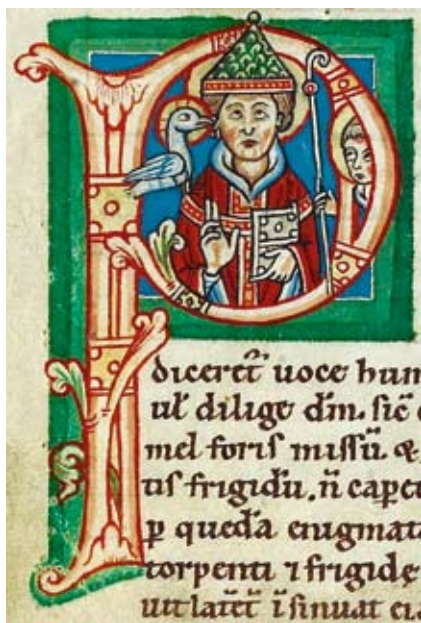 P
diceret̃ uoce hum
ul̃ dilige dm̄. sic̄
mel foris missū. &
tis frigidū. ñ capet
p̱ quedā enigmata
torpenti ⁊ frigidę
ut lateēt īsinuat ei